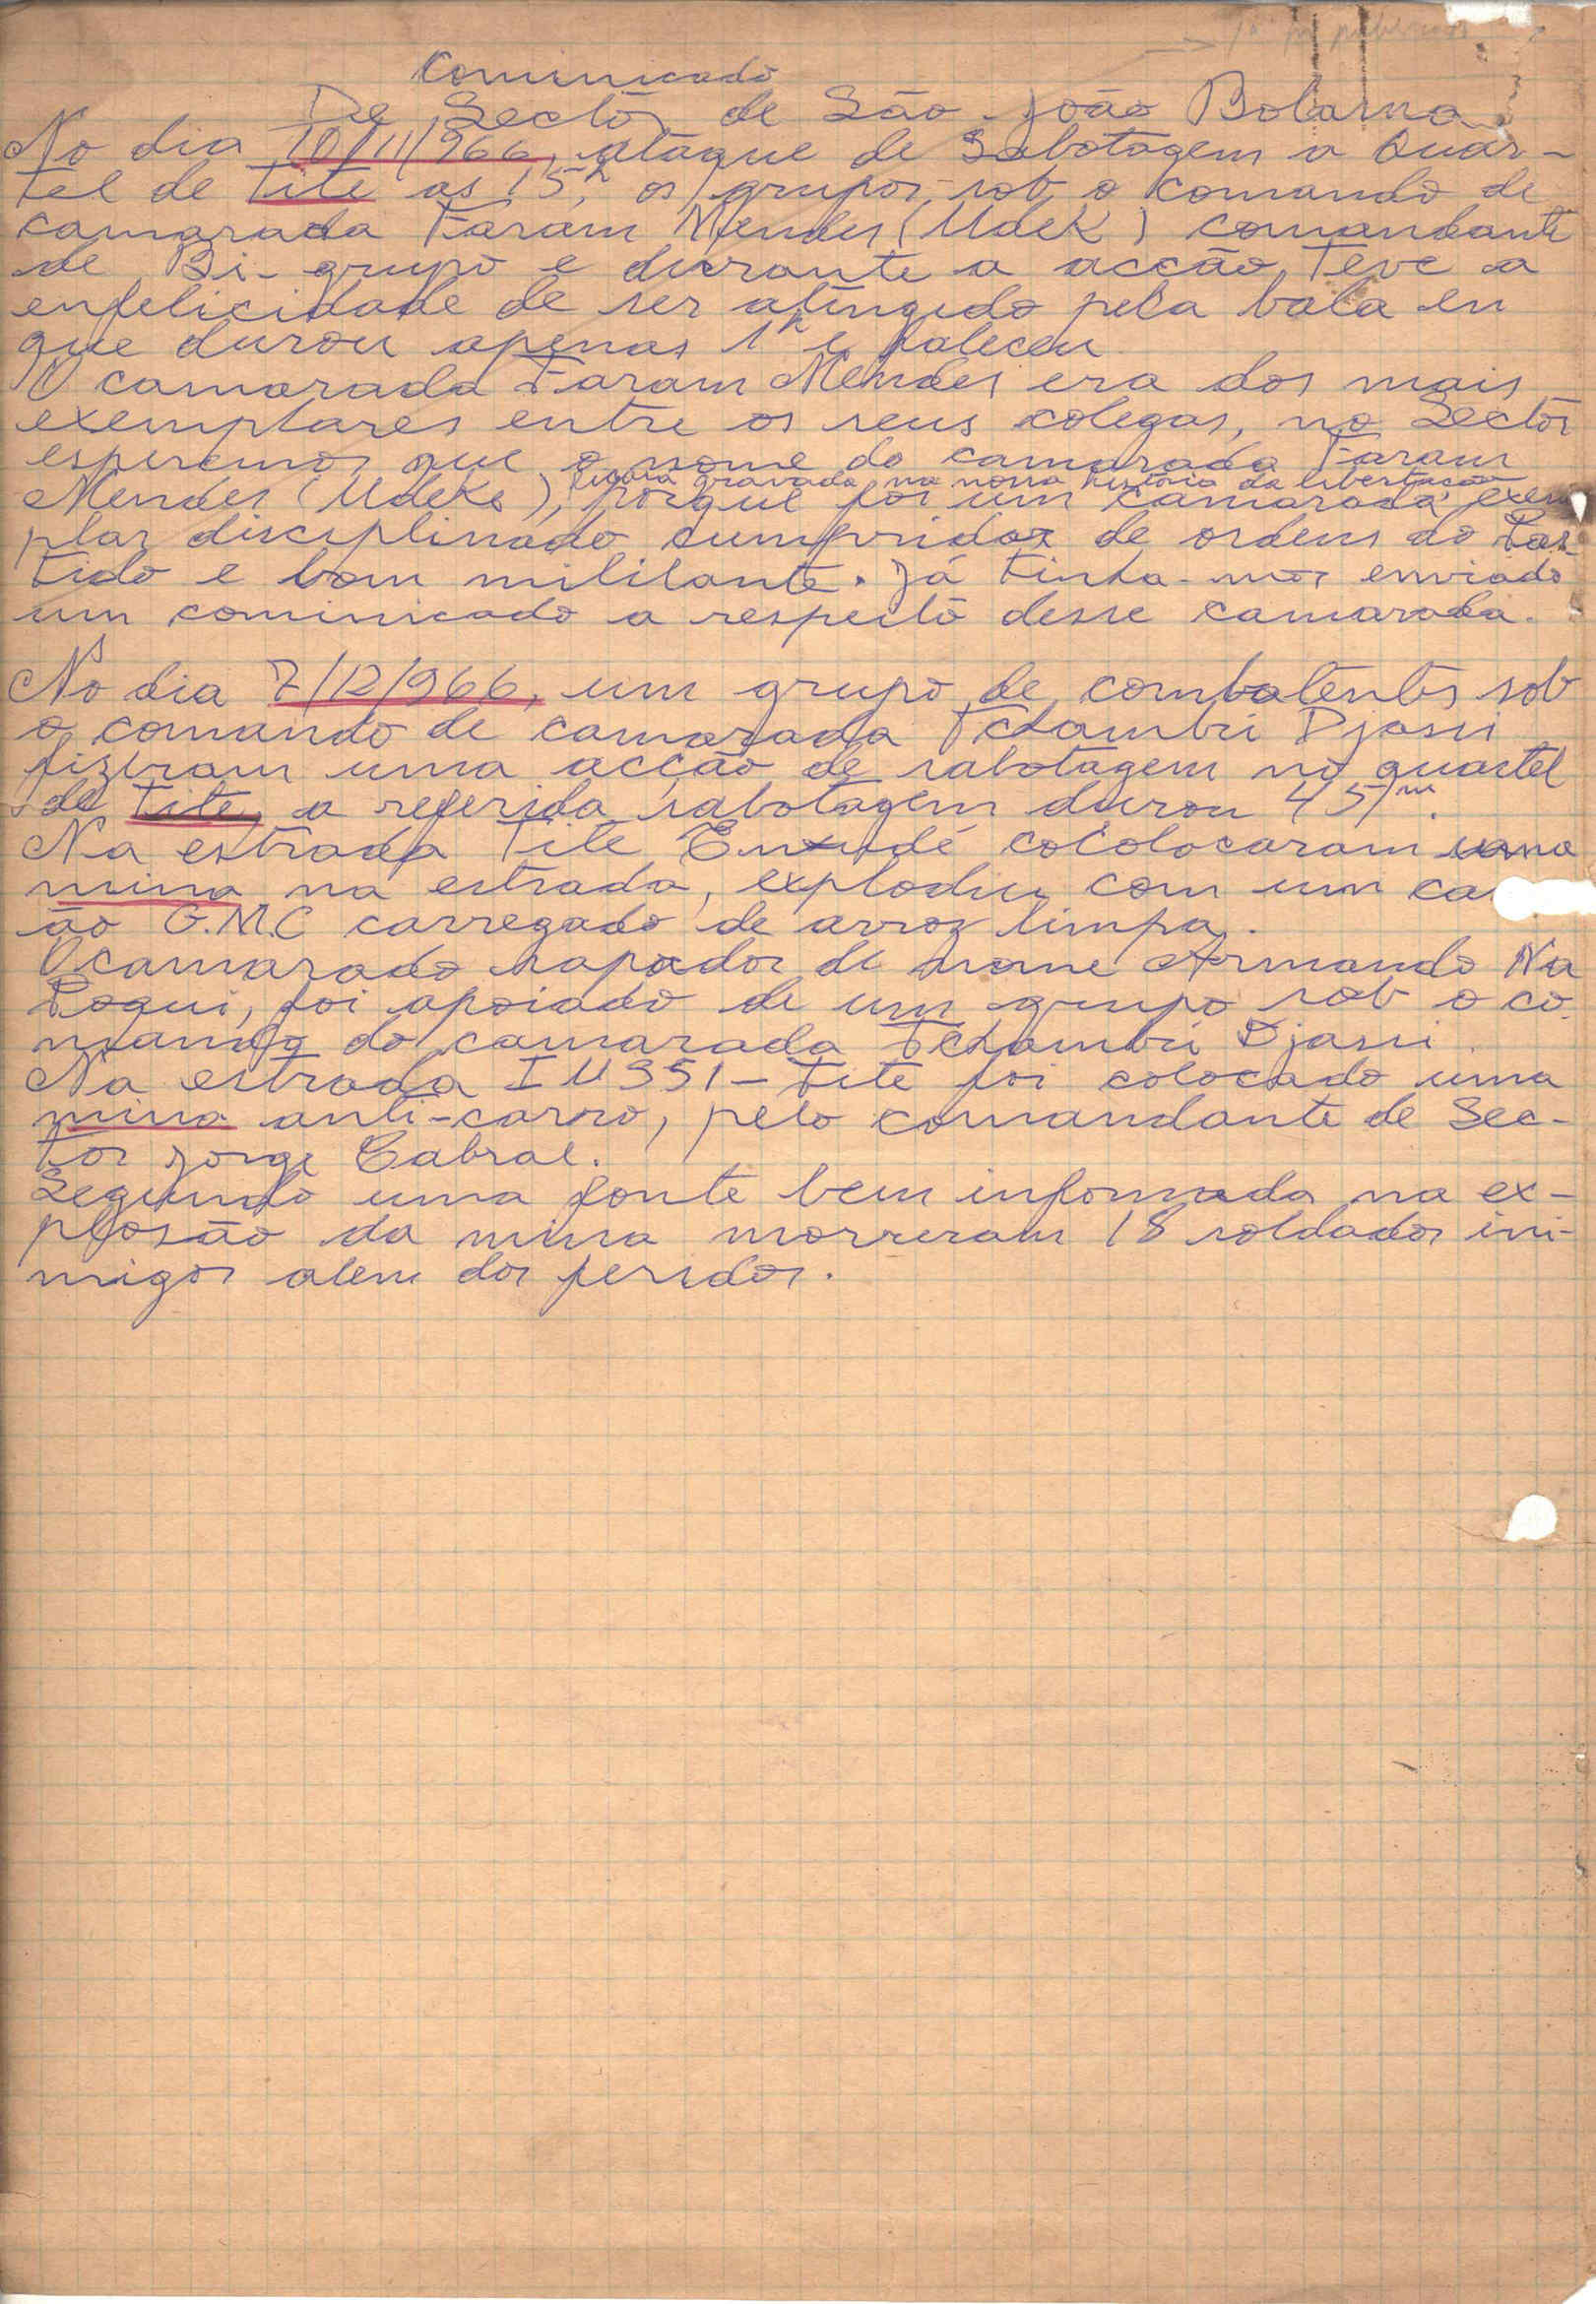 Comunicado
De Sectôr de São João Bolama
No dia 10/11/966, ataque de Sabotagem a Quar-
tel de Tite as 15h, os grupos sob o comando de
camarada Faram Mendes (Udek) comandante
de Bi-grupo e durante a acção, teve a
enfelicidade de ser atingido pela bala en
que durou apenas 1h e faleceu
O camarada Faram Mendes era dos mais
exemplares entre os seus colegas, no Sectôr
esperemos que o nome do camarada Faram
ficará gravada na nossa história da libertação
Mendes (Udeke), porque foi um camarada, exem
plar disciplinado cumpridor de ordens do Par-
tido e bom militante. Já tinha-mos enviado
um cominicado a respeito desse camarada.
No dia 7/12/966, um grupo de combatentes sob
o comando de camarada Tchambú Djassi
fizeram uma acção de sabotagem no quartel
de Tite, a referida sabotagem durou 45m.
Na estrada Tite Enxudé cocolocaram uma
mina na estrada, explodiu com um ca
ão G.M.C carregado de arroz limpa.
O camarado sapador de nome Armando Na
Poqui, foi apoiado de um grupo sob o co
mando do camarada Tchambú Djassi.
Na estrada IUSSI-Tite foi colocado uma
mina anti-carro, pelo comandante de Sec-
tor Jorge Cabral.
Segundo uma fonte bem informada na ex-
plosão da mina morreram 18 soldados ini-
migos alem dos feridos.